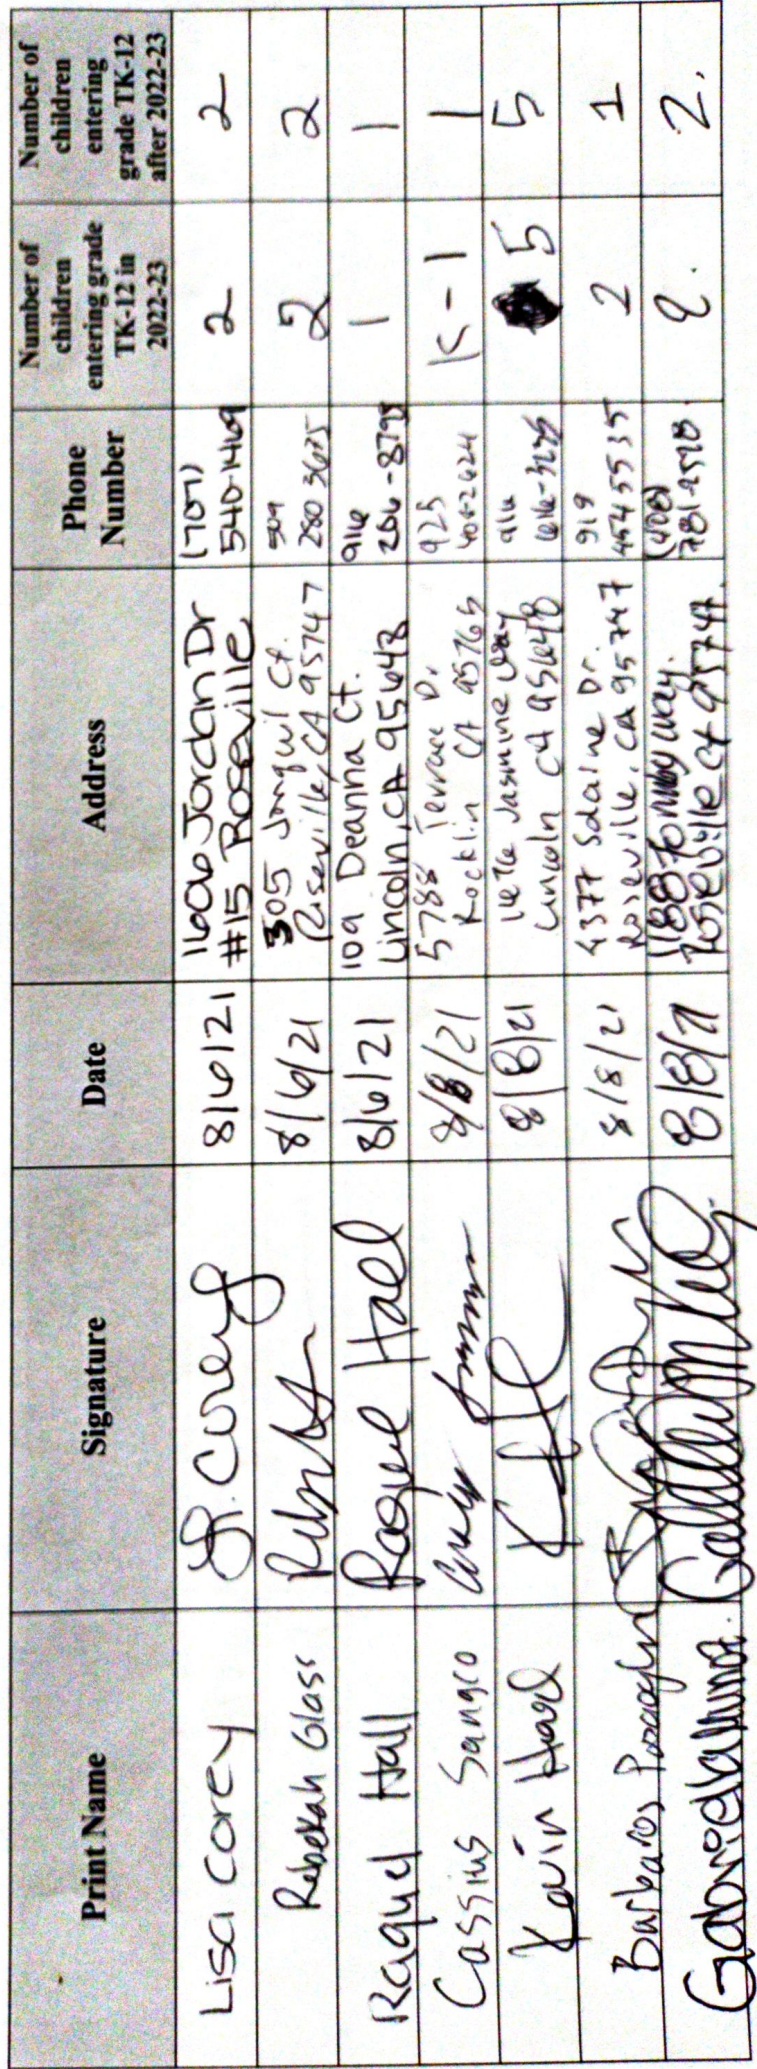 Print Name
Signature
Date
Address
Phone
Number
Number of
children
entering grade
TK-12 in
2022-23
Number of
children
entering
grade TK-12
after 2022-23
Lisa Corey
L. Corey
8/6/21
1606 Jordan Dr
#15 Roseville
(707)
540-1469
2
2
Rebekah Glass
8/6/21
305 Jonquil Ct.
Roseville, CA 95747
509
280 3675
2
2
Raquel Hall
Raquel Hall
8/6/21
109 Deanna Ct.
Lincoln, CA 95648
916
206-8798
1
1
Cassius Sangco
8/8/21
5788 Terrace Dr
Rocklin CA 95765
925
4082624
K-1
1
Kevin Hard
8/8/21
Jasmine Way
Lincoln CA 95648
916
5
5
Barbaros
8/8/21
4377 Solaine Dr.
Roseville, CA 95747
919
4545535
2
1
Gabriela
8/8/21
way.
Roseville CA 95747.
(408)
781-2528.
2.
2.